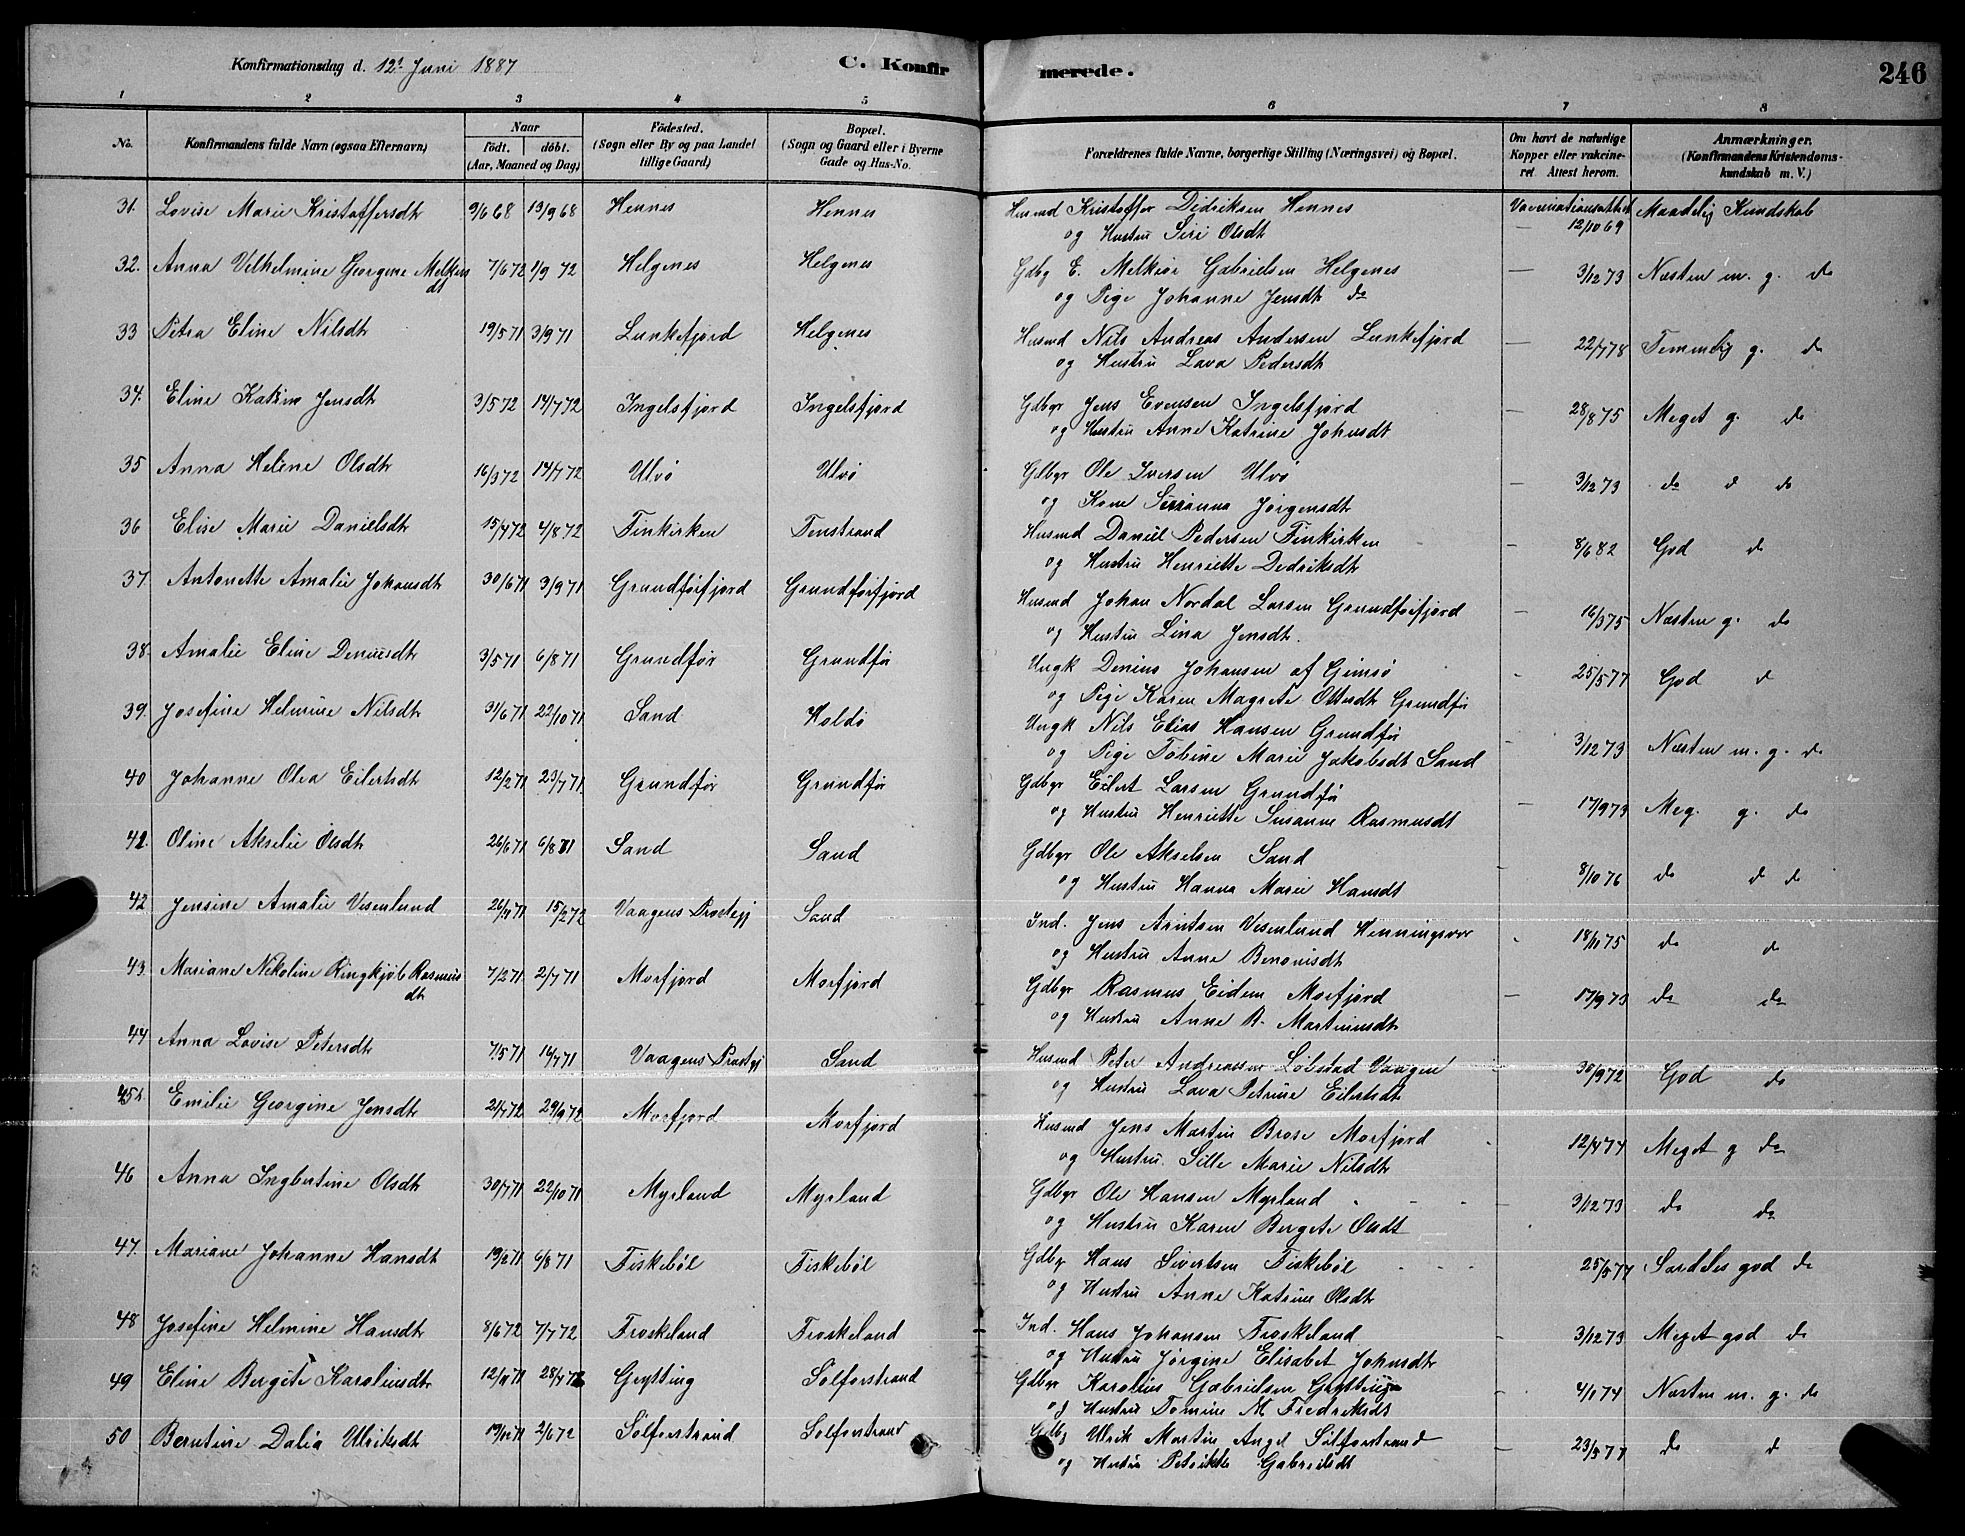 Konfirmationsdag d. 12t Juni 1887
C. Konfirmerede.
246
1 2 3 4 5 6 7 8
No. Konfirmandens fulde Navn (ogsaa Efternavn) Naar Födt. döbt. (Aar, Maaned og Dag) Födested. (Sogn eller By og paa Landet tillige Gaard) Bopæl. (Sogn og Gaard eller i Byerne Gade og Hus-No. Forældrenes fulde Navne, borgerlige Stilling (Næringsvei) og Bopæl. Om havt de naturlige Kopper eller vakcineret. Attest herom. Anmærkninger. (Konfirmandens Kristendomskundskab m. V.)
31. Lovise Marie Kristoffersdtr 9/6 68 13/9 68 Hennes Hennes Husmd Kristoffer Didriksen Hennes Vaccinationsattest Maadelig Kundskab
og Hustru Siri Olsdtr — 12/10 69
32. Anna Vilhelmine Georgine Melkiorsdtr 7/6 72 1/9 72 Helgenes Helgenes Gdbg E. Melkior Gabrielsen Helgenes — 3/12 73 Næsten m. g. do
og Pige Johanne Jensdtr do
33 Petra Eline Nilsdtr 19/5 71 3/9 71 Lunkefjord Helgenes Husmd Nils Andreas Andersen Lunkefjord — 22/7 78 Temmelig g. do
og Hustru Lava Pedersdtr
34. Eline Katrine Jensdtr 3/5 72 14/7 72 Ingelsfjord Ingelsfjord Gdbgr Jens Evensen Ingelsfjord — 28/8 75 Meget g. do
og Hustru Anne Katrine Johnsdtr
35 Anna Heline Olsdtr 16/3 72 14/7 72 Ulvö Ulvö Gdbgr Ole Iversen Ulvö — 3/12 73 do d do
og Kone Serianna Jörgensdtr
36 Elise Marie Danielsdtr 15/4 72 4/8 72 Finkirken Fenstrand Husmd Daniel Pedersen Finkirken — 8/6 82 God do
og Hustru Henriette Dedriksdtr
37. Antonette Amalie Johansdtr 30/6 71 3/9 71 Grundförfjord Grundförfjord Husmd Johan Nordal Larsen Grundförfjord — 16/3 75 Næsten g. do
og Hustru Lina Jensdtr.
38. Amalie Eline Deniusdtr 3/5 71 6/8 71 Grundför Grundför Ungk Denius Johansen af Gimsö - 25/5 77 God d
og Pige Karen Magrete Ottesdtr Grundför
39. Josefine Helmine Nilsdtr 31/6 71 22/10 71 Sand Holdö Ungk Nils Elias Hansen Grundför - 3/12 73 Næsten m. g. do
og Pige Tobine Marie Jakobsdtr Sand
40 Johanne Olea Eilertsdtr 12/2 71 23/7 71 Grundför Grundför Gdbgr Eilert Larsen Grundför — 17/9 73 Meg. g. do
og Hustru Henriette Susanne Rasmusdtr
41. Oline Akselie Olsdtr 26/6 71 6/8 71 Sand Sand Gdbgr Ole Akselsen Sand - 8/10 76 do d do
og Hustru Hanna Marie Hansdtr
42 Jensine Amalie Vesenlund 26/11 71 15/2 72 Vaagens Prostegj Sand Ind. Jens Arntsen Vesenlund Henningsvær - 18/11 75 do d
og Hustru Anne Benonisdtr
43. Mariane Nikoline Ringkjöb Rasmusdtr 7/2 71 2/7 71 Morfjord Morfjord Gdbgr Rasmus Eidem Morfjord — 17/9 73 do do
og Hustru Anne B. Martinusdtr
44 Anna Lovise Petersdtr 7/5 71 16/7 71 Vaagens Prostgj Sand Husmd Peter Andreassen Löbstad Vaagen - 30/9 72 God do
og Hustru Lava Petrine Eilertsdtr
45. Emilie Georgine Jensdtr 2/7 72 29/9 72 Morfjord Morfjord Husmd Jens Martin Brose Morfjord - 12/7 74 Meget g do
og Hustru Sille Marie Nilsdtr
46 Anna Ingbertine Olsdtr 30/7 71 22/10 71 Myrland Myrland Gdbgr Ole Hansen Myrland - 3/12 73 do do
og Hustru Karen Bergete Olsdtr
47. Mariane Johanne Hansdtr 19/2 71 6/8 71 Fiskeböl Fiskeböl Gdbgr Hans Sivertsen Fiskeböl - 25/5 77 Særdeles god do
og Hustru Anne Katrine Olsdtr
48 Josefine Helmine Hansdtr 8/6 72 7/7 72 Froskeland Froskeland Ind. Hans Johansen Froskeland - 3/12 73 Meget god do
og Hustru Jörgine Elisabet Johnsdtr
49 Eline Bergete Karoliusdtr 12/11 71 28/7 72 Grytting Sölferstrand Gdbgr Karolius Gabrielsen Grytting - 4/1 74 Næsten m. g. do
og Hustru Tomine M Fredriksdtr
50 Berntine Dalia Ulriksdtr 19/12 71 2/6 72 Sölferstrand Sölferstrand Gdbg Ulrik Martin Angel Sölferstrand — 23/5 77 do d
og Hustru Petrikke Gabrielsdtr